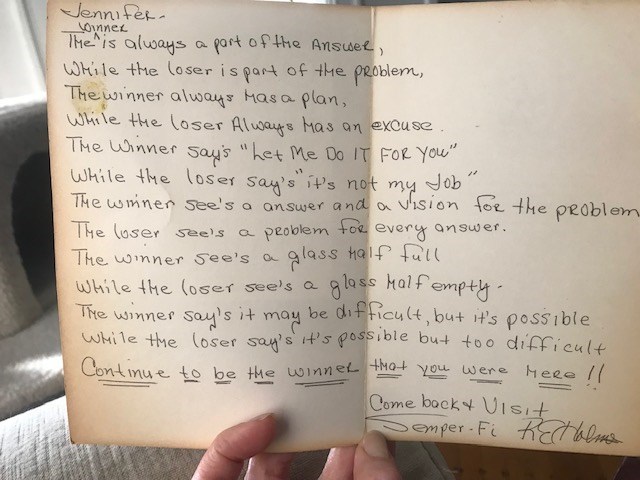 Jennifer-
winner
The ^ is always a part of the Answer,
While the loser is part of the problem,
The winner always has a plan,
While the loser Always has an excuse.
The Winner say's "Let Me Do IT FOR You"
While the loser say's "it's not my Job"
The winner see's a answer and a vision for the problem
The loser see's a problem for every answer.
The winner see's a glass Half full
While the loser see's a glass Half empty.
The winner say's it may be difficult, but it's possible
while the loser say's it's possible but too difficult
Continue to be the winner that you were Here !!
Come back & Visit
Semper-Fi RE Holmes